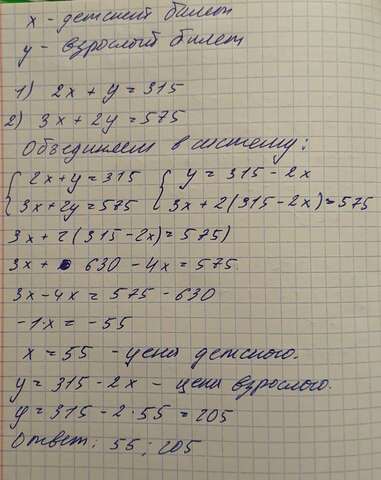 x - детский билет
y - взрослый билет
1) 2x + y = 315
2) 3x + 2y = 575
Объединяем в систему:
{ 2x + y = 315 { y = 315 - 2x
3x + 2y = 575 3x + 2(315 - 2x) = 575
3x + 2(315 - 2x) = 575)
3x + 630 - 4x = 575
3x - 4x = 575 - 630
-1·x = -55
x = 55 - цена детского.
y = 315 - 2x - цена взрослого.
y = 315 - 2·55 = 205
Ответ: 55; 205